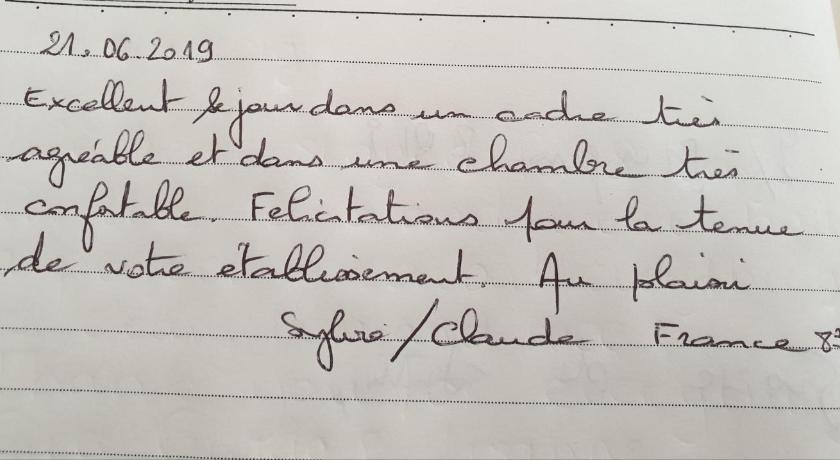 21.06.2019
Excellent séjour dans un cadre très
agréable et dans une chambre très
confortable. Felicitations pour la tenue
de votre établissement. Au plaisir
Sylvie/Claude France 83